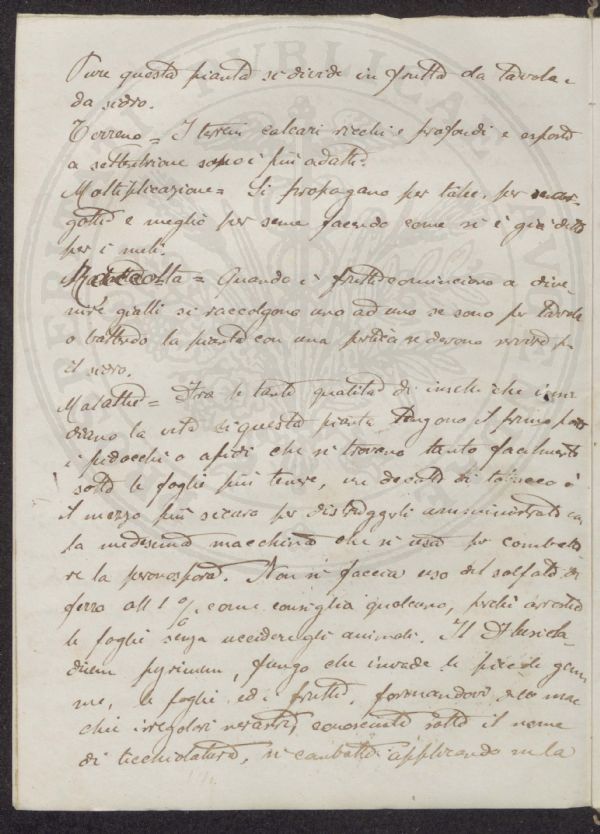 Pure questa pianta si divide in frutta da tavola e
da sidro.
Terreno = I terreni calcari ricchi e profondi e esposti
a settentrione sono i più adatti.
Moltiplicazione = Si propagano per talee, per mar-
gotti e meglio per seme facendo come si è già detto
per i meli.
Raccolta = Quando i frutti cominciano a dive-
nire gialli si raccolgono uno ad uno se sono per tavola
o battendo la pianta con una pertica se devono servire per
il sidro.
Malattie = Fra le tante qualità di insetti che insi-
diano la vita di questa pianta tengono il primo posto
i pidocchi o afidi che si trovano tanto facilmente
sotto le foglie più tenere, un decotto di tabacco è
il mezzo più sicuro per distruggerli amministrato con
la medesima macchina che si usa per combatte
re la peronospora. Non si faccia uso del solfato di
ferro all 1 % come consiglia qualcuno, perchè arrostisce
le foglie senza uccidere gli animali. Il
pyrinum, fungo che invade le piccole gem
me, le foglie ed i frutti, formandovi mac
chie irregolari nerastre, conosciuto sotto il nome
di ticchiolatura, si combatte applicando sulla